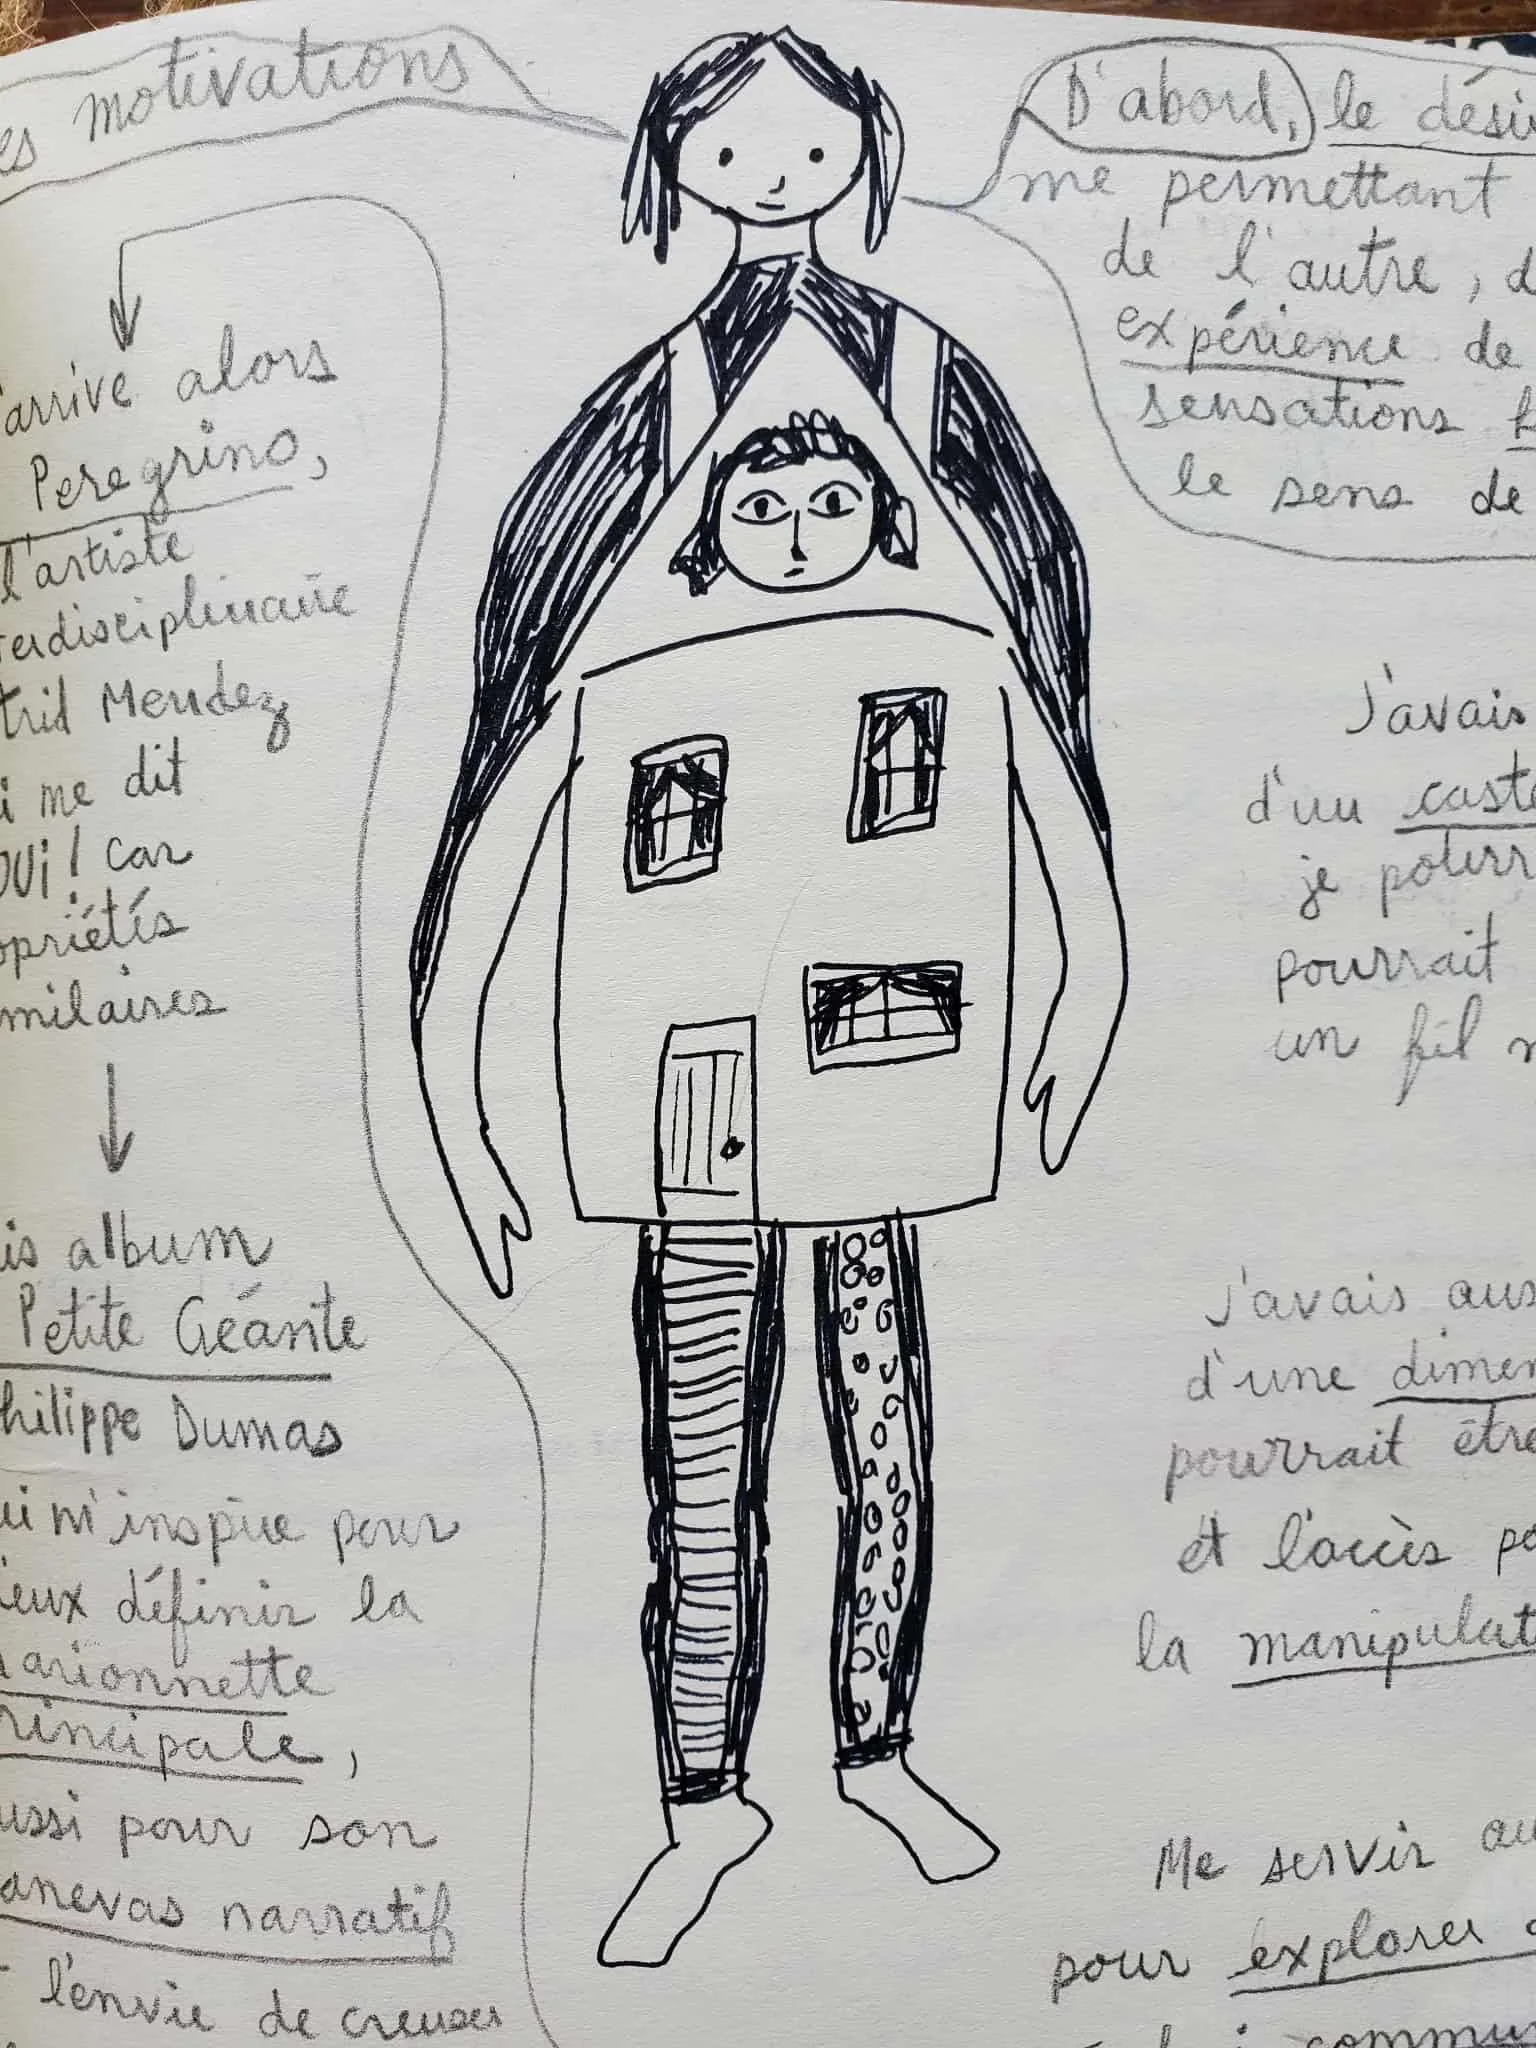 es motivations
'arrive alors
Peregrino,
l'artiste
terdisciplinaire
trid Mendez
i me dit
OUi ! car
opriétés
milaires
is album
Petite Géante
hilippe Dumas
ui m'inspire pour
ieux définir la
arionnette
rincipale,
ussi pour son
anevas narratif
l'envie de creuser
D'abord, le dési
me permettant
de l'autre, d
expérience de
sensations
le sens de
J'avais
d'un cast
je pourr
pourrait
un fil
J'avais aus
d'une dimen
pourrait être
et l'accès po
la manipulat
Me servir au
pour explorer
commun